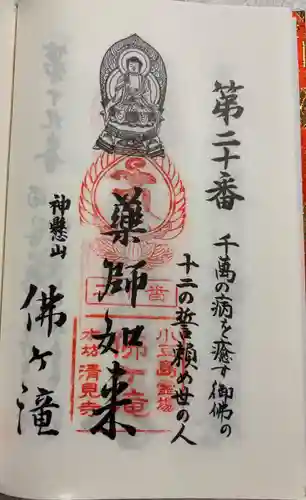 第二十番
千萬の病を癒す御佛の
十二の誓頼め世の人
藥師如来
神懸山
佛ヶ滝
番
小豆島霊場
佛ヶ滝
本坊 清見寺